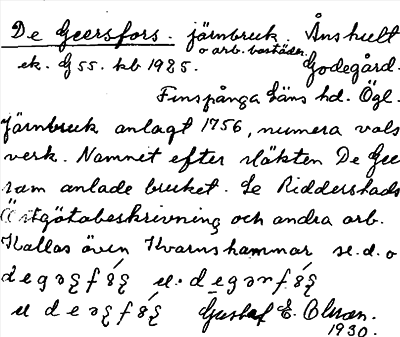 De Geersfors. järnbruk. Ånshult
o arb. bostäder.
ek. G 55. kb 1925. Godegård.
Finspånga Läns hd. Ögl.
Järnbruk anlagt 1756, numera vals
verk. Namnet efter släkten De Gee
ram anlade bruket. Se Ridderstads
Östgötabeskrivning och andra arb.
Kallas även Kvarnshammar se. d. o
Gustaf E. Olsson.
1930.